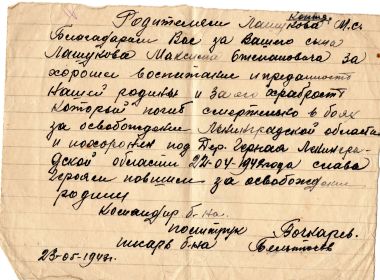 Родителям Лашукова М.С.
Благодарим Вас за Вашего сына
Лашукова Максима Степановича за
хорошее воспитание и преданность
нашей родины и за его храбрость
который погиб смертельно в боях
за освобождение Ленинградской области
и похоронен под Дер. Черная Ленингра-
дской области 22-04-1942 года слава
героям повшим за освобождение
родины
командир б-на.
политрук Бочкарев.
писарь б-на
23-05-1942г.